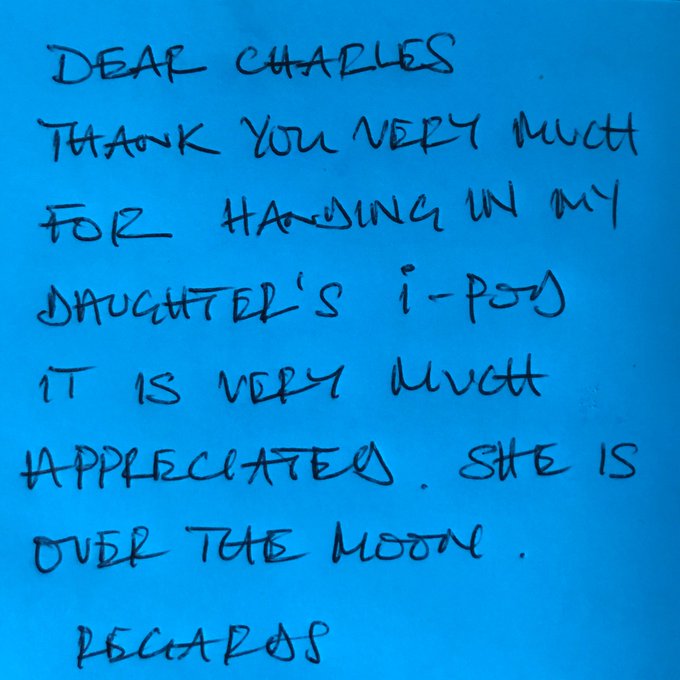 DEAR CHARLES
THANK YOU VERY MUCH
FOR HANDING IN MY
DAUGHTER'S i-POD
IT IS VERY MUCH
APPRECIATED. SHE IS
OVER THE MOON.
REGARDS